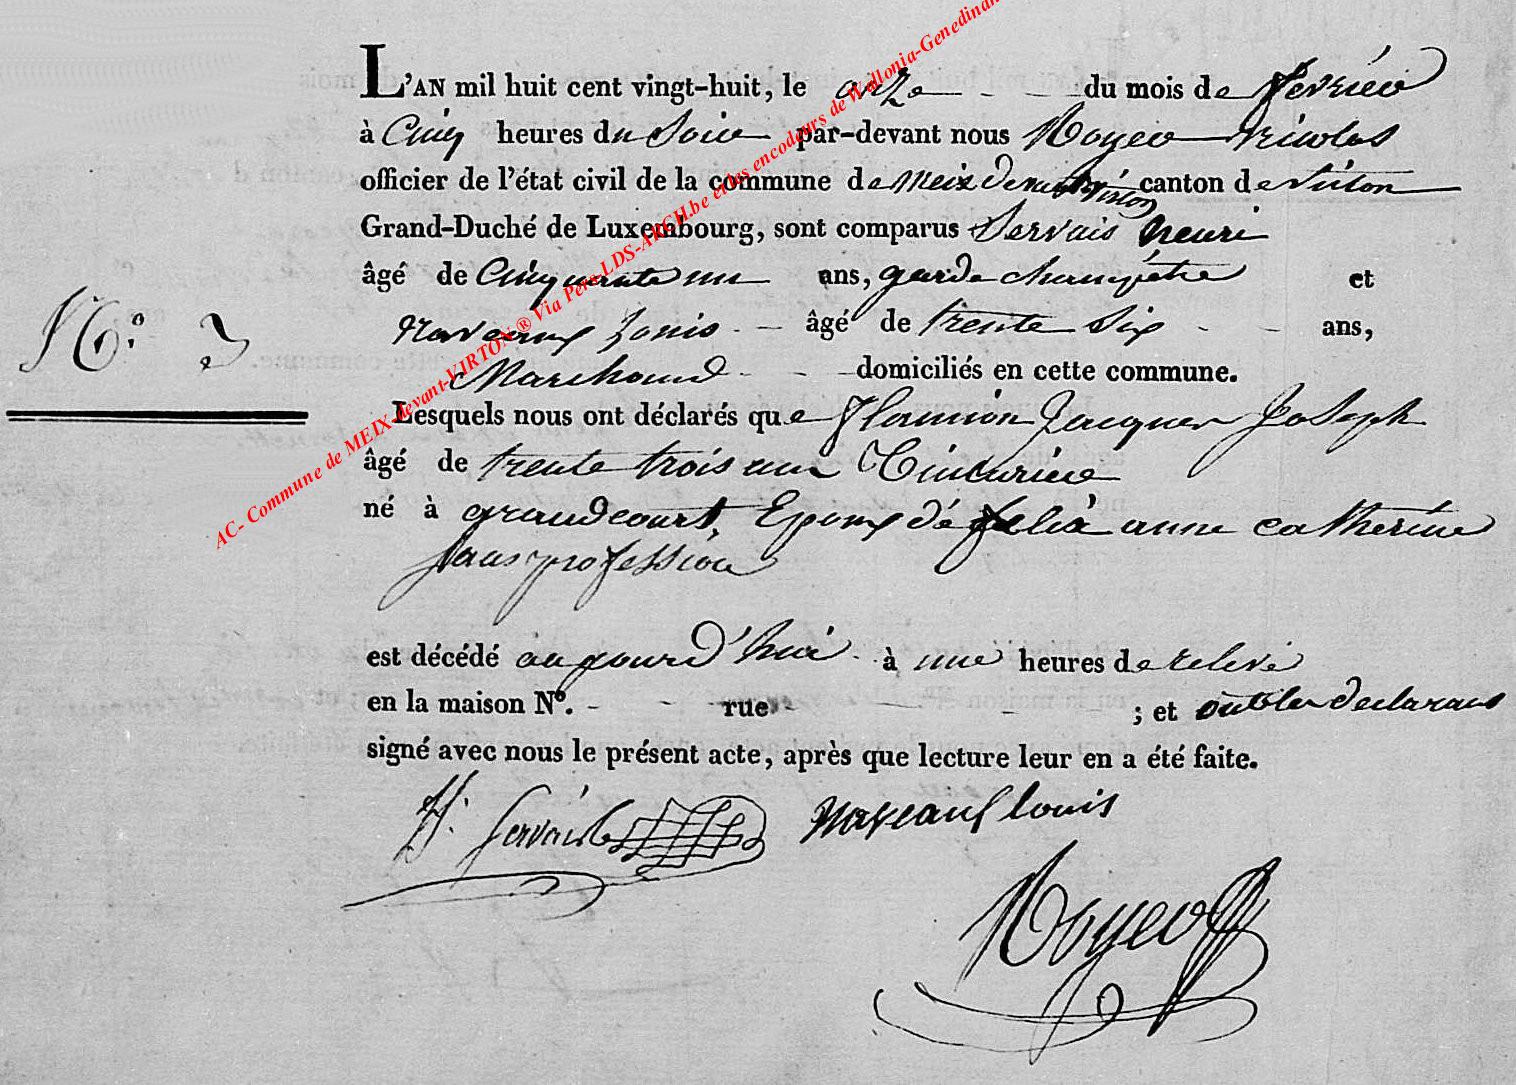 L'AN mil huit cent vingt-huit, le onze du mois de fevrier
à Cinq heures du Soir par-devant nous Noyer nicolas
officier de l'état civil de la commune de Meix devant Virton canton de virton
Grand-Duché de Luxembourg, sont comparus Servais henri
âgé de Cinquante un ans, garde champetre et
Naveaux Louis âgé de trente Six ans,
Marchand domiciliés en cette commune.
N.° 3
Lesquels nous ont déclarés que flamion Jacques Joseph
âgé de trente trois ans Tinturier
né à grandcourt, Epoux dé felix anne catherine
sans profession
est décédé aujourd'hui à une heures de relevé
en la maison N°. - - rue - - - - ; et ont les declarans
signé avec nous le présent acte, après que lecture leur en a été faite.
H. Servais Naveaux louis
Noyer
AC- Commune de MEIX-devant-VIRTON ® Via Pers-LDS-ARCH.be et les encodeurs de Wallonia-Genedinan